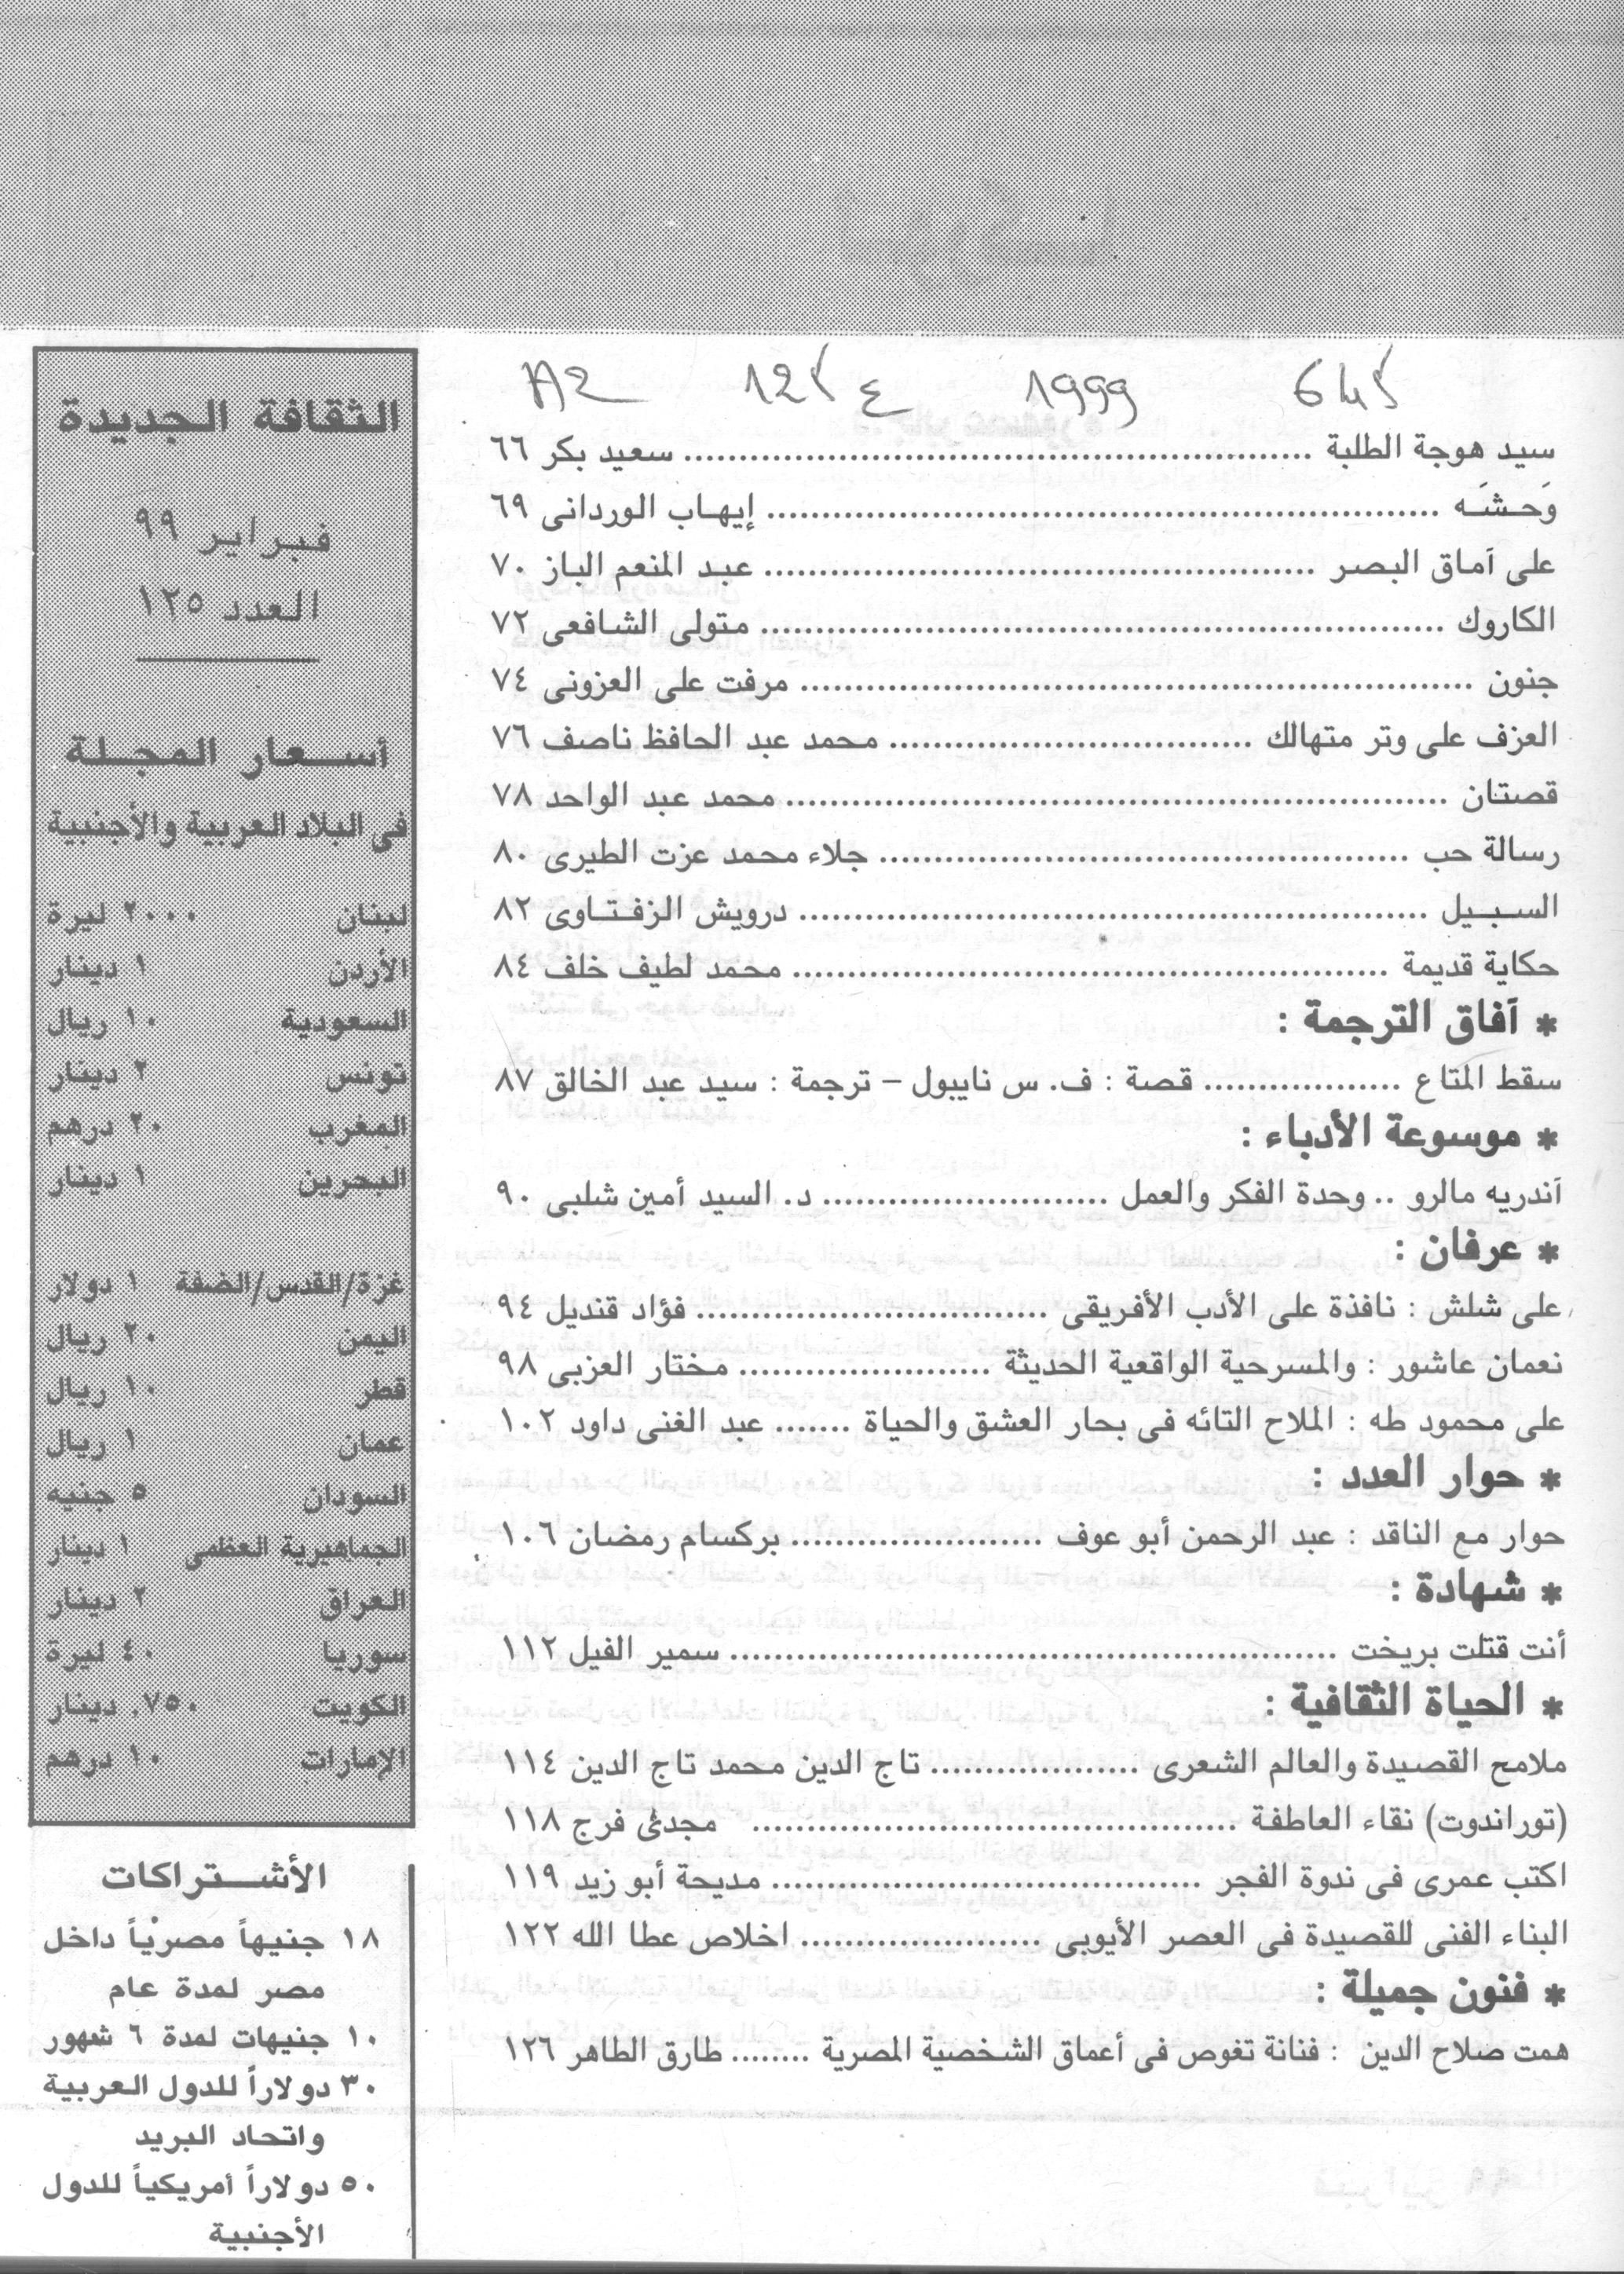 A2 125 ع 1999 645
سيد هوجة الطلبة ........ سعيد بكر ٦٦
وَحشَه ........ إيهاب الوردانى ٦٩
على آماق البصر ........ عبد المنعم الباز ٧٠
الكاروك ........ متولى الشافعى ٧٢
جنون ........ مرفت على العزونى ٧٤
العزف على وتر متهالك ........ محمد عبد الحافظ ناصف ٧٦
قصتان ........ محمد عبد الواحد ٧٨
رسالة حب ........ جلاء محمد عزت الطيرى ٨٠
السبيل ........ درويش الزفتاوى ٨٢
حكاية قديمة ........ محمد لطيف خلف ٨٤
* آفاق الترجمة :
سقط المتاع ........ قصة : ف. س نايبول – ترجمة : سيد عبد الخالق ٨٧
* موسوعة الأدباء :
آندريه مالرو .. وحدة الفكر والعمل ........ د. السيد أمين شلبى ٩٠
* عرفان :
على شلش : نافذة على الأدب الأفريقى ........ فؤاد قنديل ٩٤
نعمان عاشور : والمسرحية الواقعية الحديثة ........ مختار العزبى ٩٨
على محمود طه : الملاح التائه فى بحار العشق والحياة ....... عبد الغنى داود ١٠٢
* حوار العدد :
حوار مع الناقد : عبد الرحمن أبو عوف ........ بركسام رمضان ١٠٦
* شهادة :
أنت قتلت بريخت ........ سمير الفيل ١١٢
* الحياة الثقافية :
ملامح القصيدة والعالم الشعرى ........ تاج الدين محمد تاج الدين ١١٤
(توراندوت) نقاء العاطفة ........ مجدى فرج ١١٨
اكتب عمرى فى ندوة الفجر ........ مديحة أبو زيد ١١٩
البناء الفنى للقصيدة فى العصر الأيوبى ........ اخلاص عطا الله ١٢٢
* فنون جميلة :
همت صلاح الدين : فنانة تغوص فى أعماق الشخصية المصرية ........ طارق الطاهر ١٢٦
الثقافة الجديدة
فبراير ٩٩
العدد ١٢٥
أسعار المجلة
فى البلاد العربية والأجنبية
لبنان ٢٠٠٠ ليرة
الأردن ١ دينار
السعودية ١٠ ريال
تونس ٢ دينار
المغرب ٢٠ درهم
البحرين ١ دينار
غزة/القدس/الضفة ١ دولار
اليمن ٢٠ ريال
قطر ١٠ ريال
عمان ١ ريال
السودان ٥ جنيه
الجماهيرية العظمى ١ دينار
العراق ٢ دينار
سوريا ٤٠ ليرة
الكويت ٧٥٠, دينار
الإمارات ١٠ درهم
الأشتراكات
١٨ جنيهاً مصرياً داخل
مصر لمدة عام
١٠ جنيهات لمدة ٦ شهور
٣٠ دولاراً للدول العربية
واتحاد البريد
٥٠ دولاراً أمريكياً للدول
الأجنبية